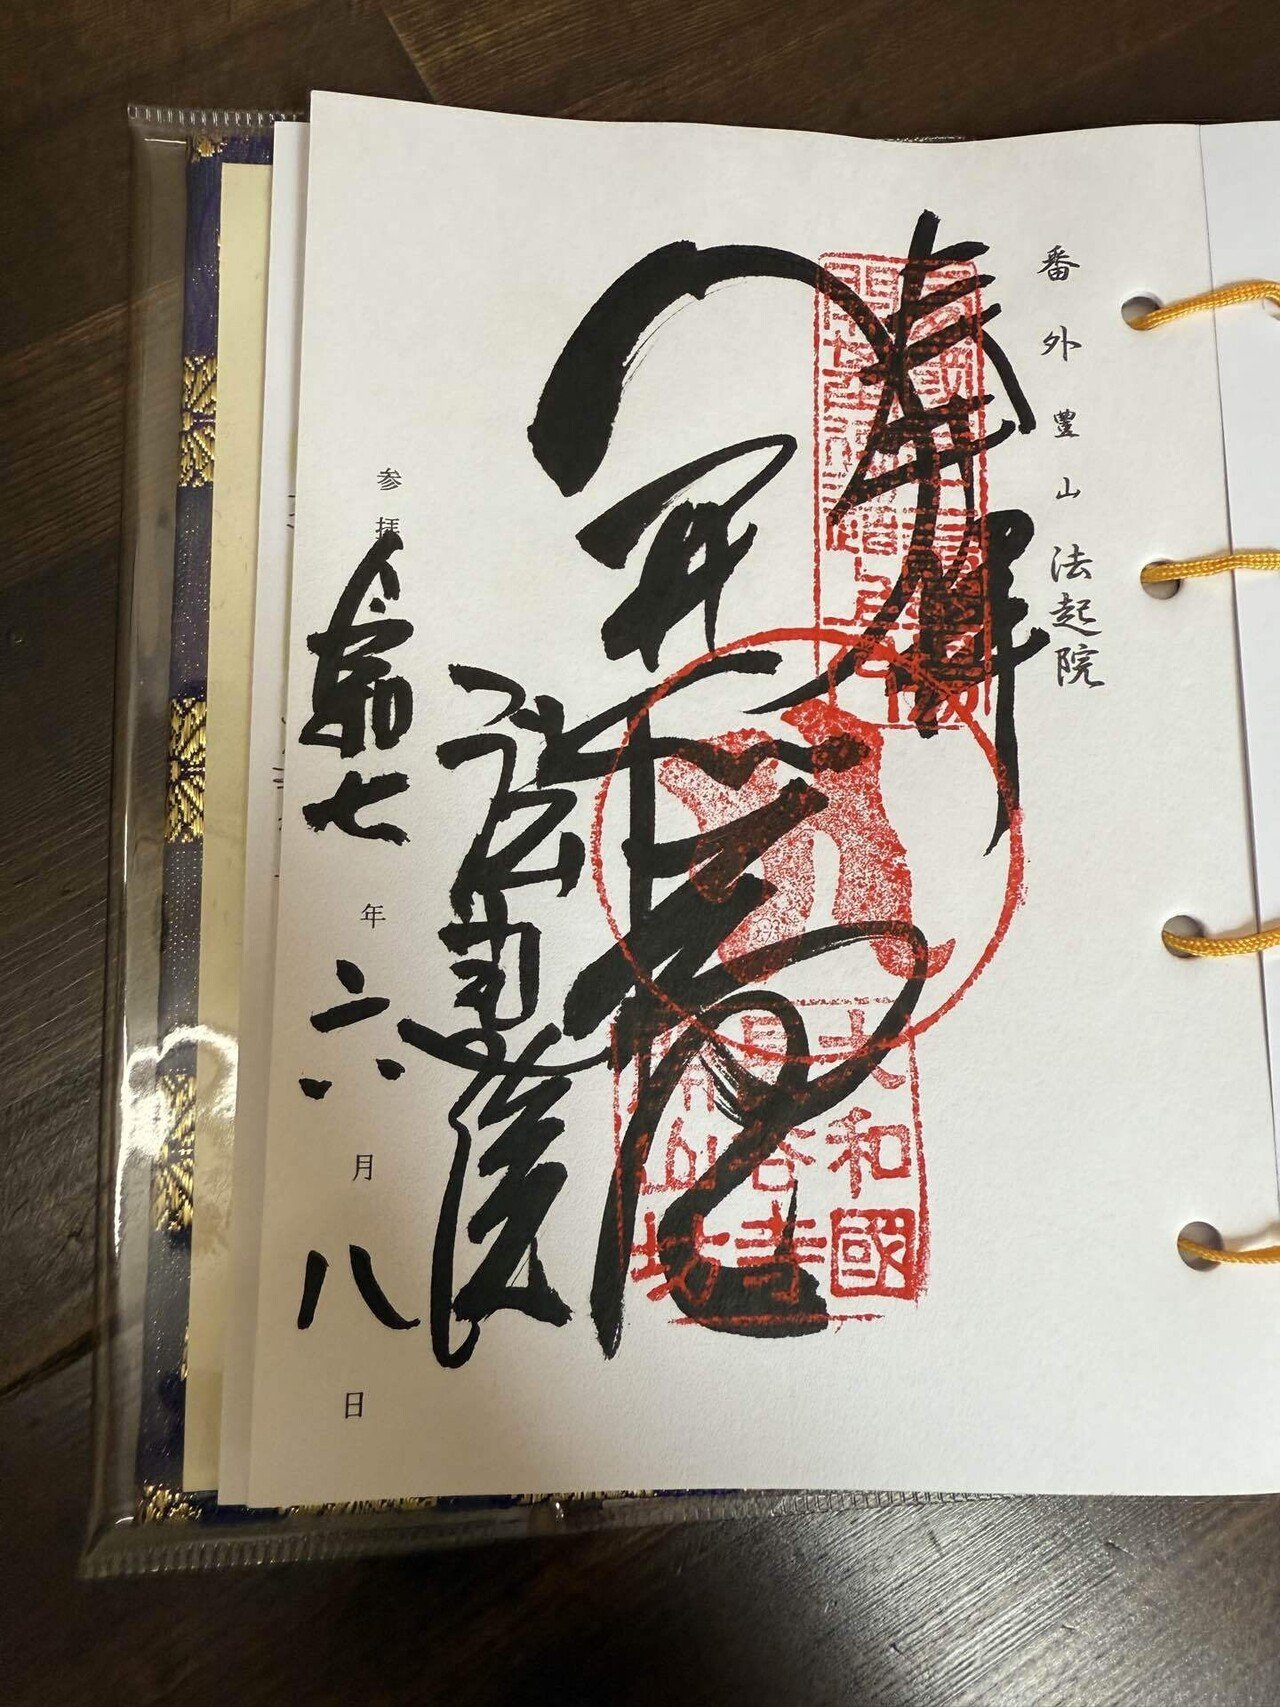 番外豊山法起院
奉拝
開山堂
法起院
大和國
長谷寺
開山坊
参拝 令和七年六月八日